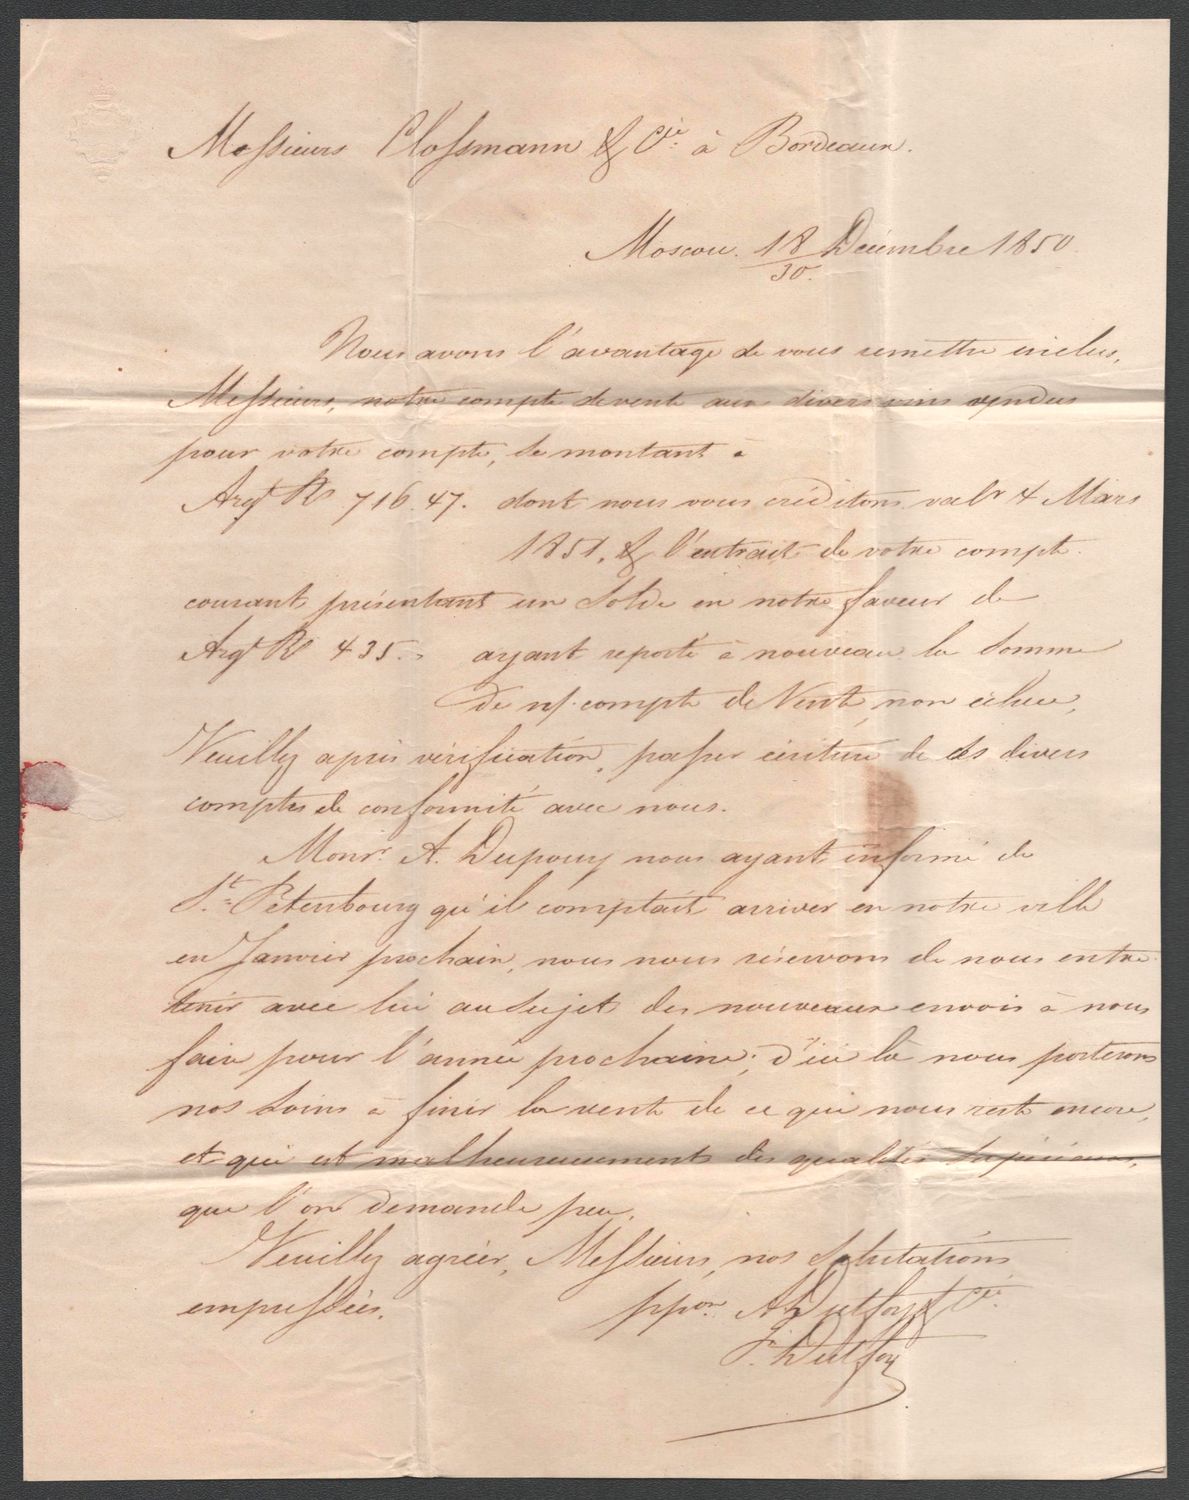 Messieurs Clossmann & Cie à Bordeaux.
Moscou. 18/30 Décembre 1850.
Nous avons l'avantage de vous remettre inclus,
Messieurs, notre compte de vente aux divers vins vendus
pour votre compte, se montant à
Argt Rs 716.47. dont nous vous créditons valr 4 Mars
1851, & l'extrait de votre compte
courant présentant un solde en notre faveur de
Argt Rs 435. ayant reporté à nouveau la somme
de n/. compte de Vente, non échue,
Veuillez après vérification, passer écriture de ces divers
comptes de conformité avec nous.
Monsr. A. Dupouy nous ayant informé de
St. Petersbourg qu'il comptait arriver en notre ville
en Janvier prochain, nous nous réservons de nous entre
tenir avec lui au sujet des nouveaux envois à nous
faire pour l'année prochaine; d'ici là nous porterons
nos soins à finir la vente de ce qui nous reste encore,
et qui est malheureusement des qualités supérieures,
que l'on demande peu.
Veuillez agréer, Messieurs, nos salutations
empressées.
ppon A. Dutfoy & Cie
F. Dutfoy